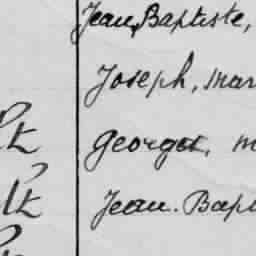 Jean, Baptiste,
Joseph, mar
lt Georges, m
lt Jean. Bapt